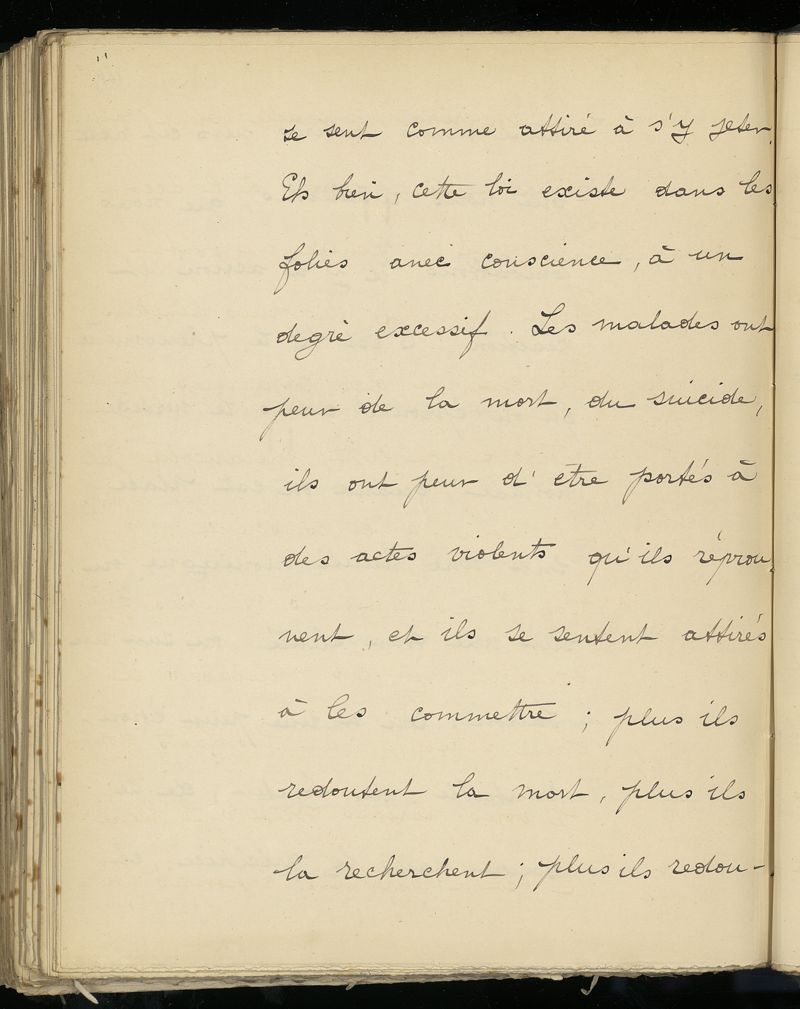 se sent comme attiré à s'y jeter.
Eh bien, cette loi existe dans les
folies avec conscience, à un
degré excessif. Les malades ont
peur de la mort, du suicide,
ils ont peur d'etre portés à
des actes violents qu'ils réprou-
vent, et ils se sentent attirés
à les commettre; plus ils
redoutent la mort, plus ils
la recherchent; plus ils redou-